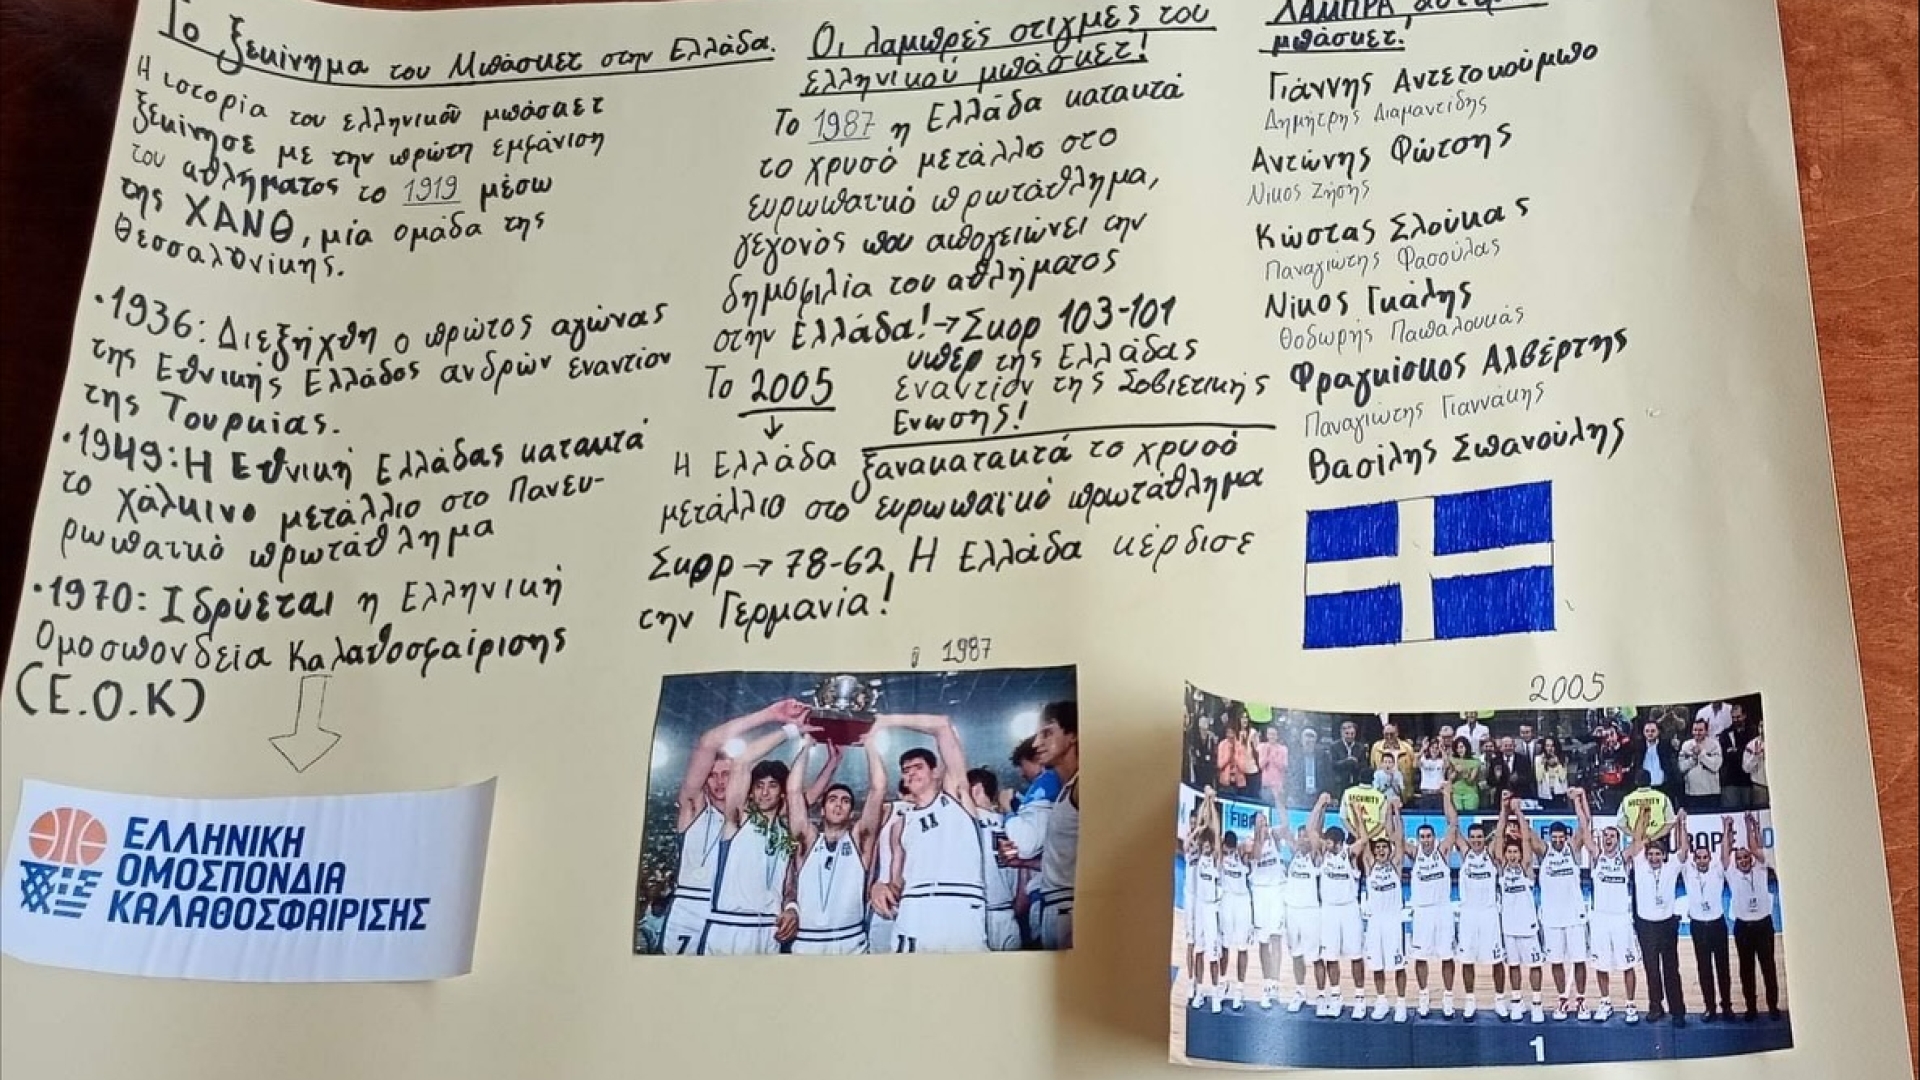 Το ξεκίνημα του Μπάσκετ στην Ελλάδα.
Η ιστορία του ελληνικού μπάσκετ
ξεκίνησε με την πρώτη εμφάνιση
του αθλήματος το 1919 μέσω
της ΧΑΝΘ, μία ομάδα της
Θεσσαλονίκης.
·1936: Διεξήχθη ο πρώτος αγώνας
της Εθνικής Ελλάδος ανδρών εναντίον
της Τουρκίας.
·1949: Η Εθνική Ελλάδας κατακτά
το χάλκινο μετάλλιο στο Πανευ-
ρωπαϊκό πρωτάθλημα
·1970: Ιδρύεται η Ελληνική
Ομοσπονδεία Καλαθοσφαίρισης
(Ε.Ο.Κ)
ΕΛΛΗΝΙΚΗ
ΟΜΟΣΠΟΝΔΙΑ
ΚΑΛΑΘΟΣΦΑΙΡΙΣΗΣ
Οι λαμπρές στιγμές του
ελληνικού μπάσκετ!
Το 1987 η Ελλάδα κατακτά
το χρυσό μετάλλιο στο
ευρωπαϊκό πρωτάθλημα,
γεγονός που απογειώνει την
δημοφιλία του αθλήματος
στην Ελλάδα! → Σκορ 103-101
υπέρ της Ελλάδας
εναντίον της Σοβιετικής
Ενωσης!
Το 2005
↓
Η Ελλάδα ξανακατακτά το χρυσό
μετάλλιο στο ευρωπαϊκό πρωτάθλημα
Σκορ → 78-62, Η Ελλάδα κέρδισε
την Γερμανία!
1987
11
7
11
ΛΑΜΠΡΑ
μπάσκετ!
Γιάννης Αντετοκούμπο
Δημήτρης Διαμαντίδης
Αντώνης Φώτσης
Νίκος Ζήσης
Κώστας Σλούκας
Παναγιώτης Φασούλας
Νίκος Γκάλης
Θοδωρής Παπαλουκάς
Φραγκίσκος Αλβέρτης
Παναγιώτης Γιαννάκης
Βασίλης Σπανούλης
2005
SECURITY
SECURITY
FIBA
1